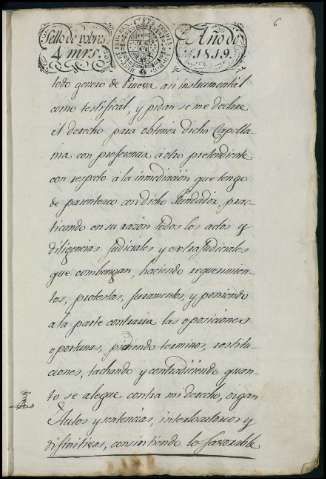 6
Sello de pobres
4 mrs.
Año de
1819.
todo genero de prueva asi instrumental
como testifical, y pidan se me declare
el derecho para obtener dicha Capella
nia con preferencia a otro pretendiente
con respeto a la inmediacion que tengo
de parentesco con dicho Fundador, prac
ticando en su razon todos los actos y
diligencias judiciales y extrajudiciales
que combengan, haciendo requerimien
tos, protestas, juramentos, y poniendo
a la parte contraria las oposiciones
oportunas, pidiendo terminos, restitu
ciones, tachando y contradiciendo quan
to se alegue contra mi derecho, oigan
Autos y sentencias, interlocutorios y
difinitivas, consintiendo lo favorable